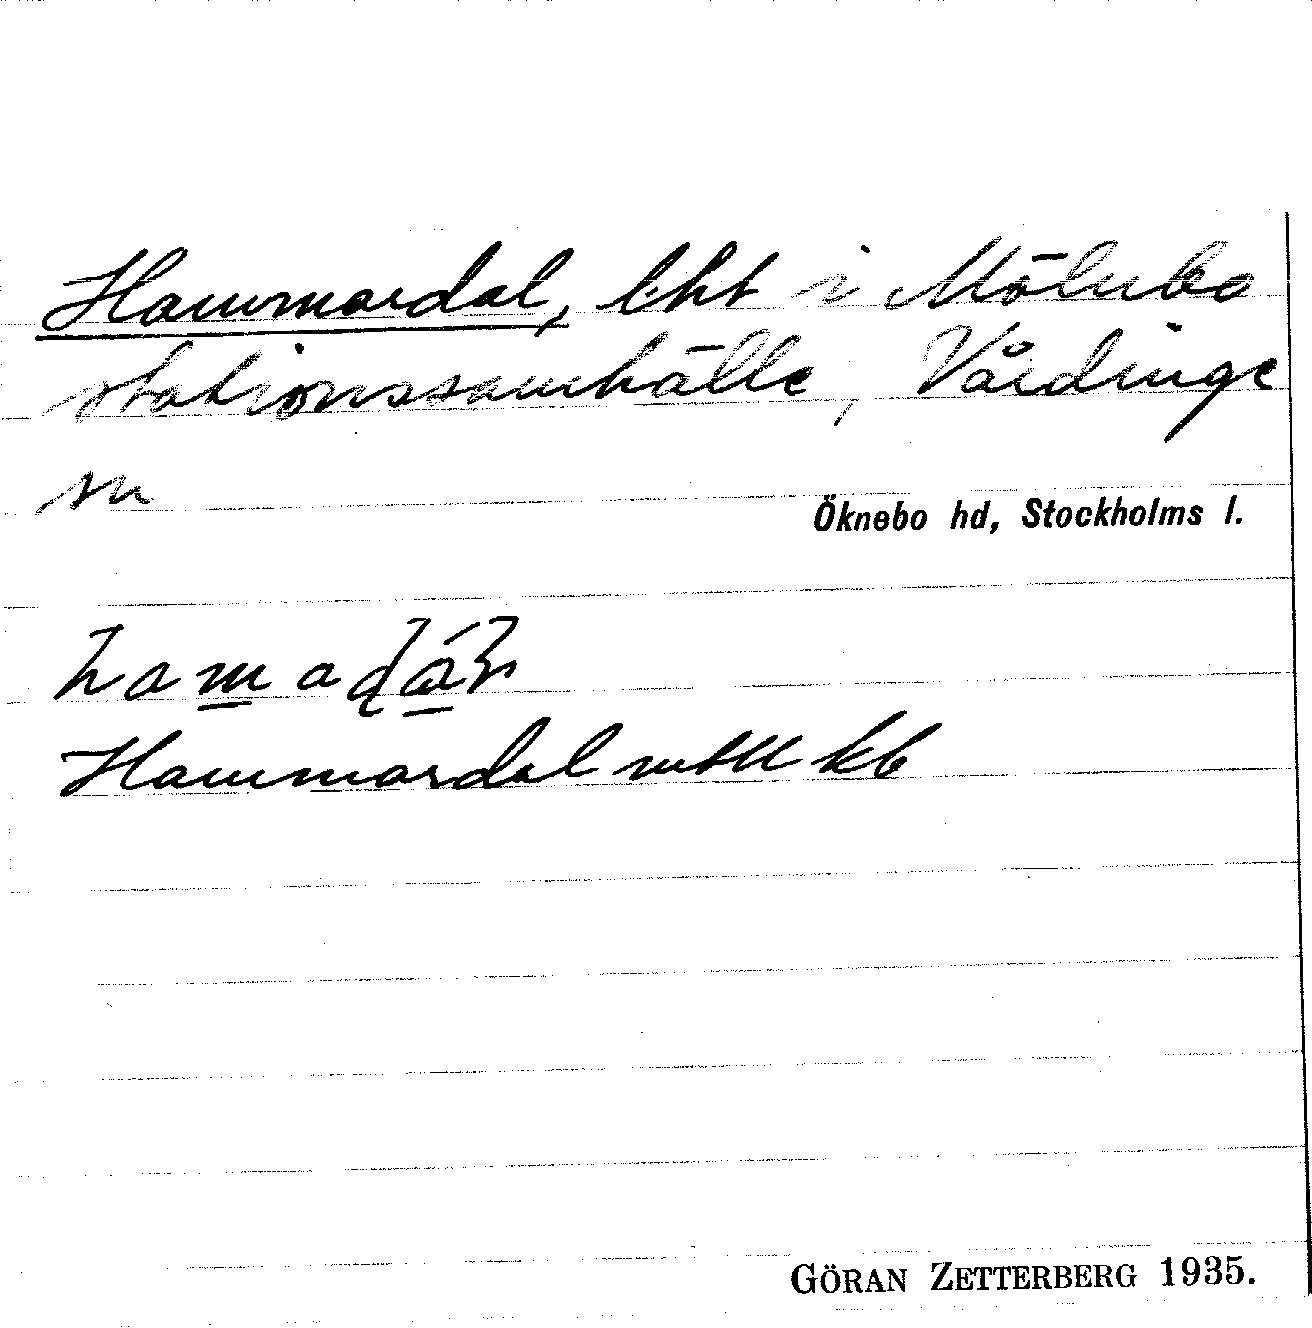 Hammardal, lht i Mölnbo
stationssamhälle, Vårdinge
sn
Öknebo hd, Stockholms l.
Hammardal mtll kb
GÖRAN ZETTERBERG 1935.